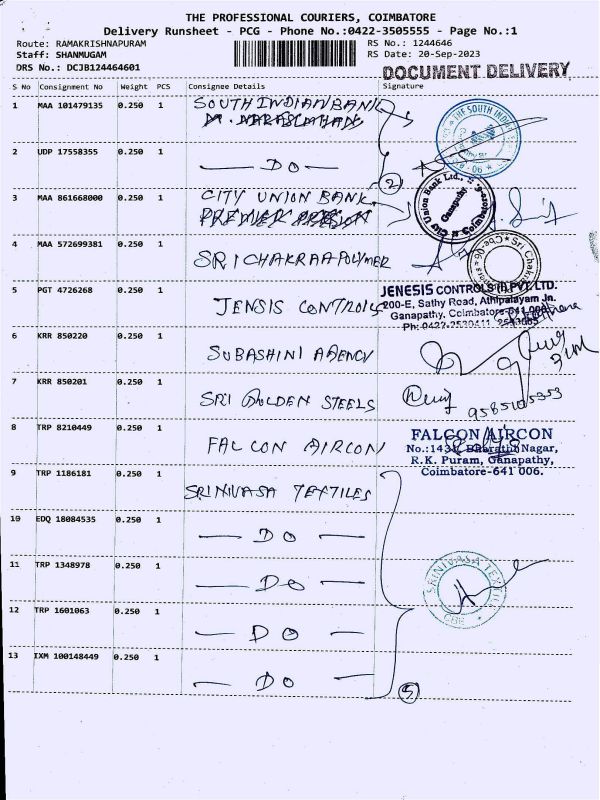 THE PROFESSIONAL COURIERS, COIMBATORE
Delivery Runsheet - PCG - Phone No.:0422-3505555 - Page No.:1
Route: RAMAKRISHNAPURAM
Staff: SHANMUGAM
DRS No.: DCJB124464601
RS No.: 1244646
RS Date: 20-Sep-2023
DOCUMENT DELIVERY
S No Consignment No Weight PCS Consignee Details Signature
1 MAA 101479135 0.250 1 SOUTH INDIAN BANK
THE SOUTH
2 UDP 17558355 0.250 1 — DO —
2
3 MAA 861668000 0.250 1 CITY UNION BANK
City Union Bank Ltd.,
Ganapathy
Coimbatore
4 MAA 572699381 0.250 1 SRI CHAKRAA POLYMER
Sri Chakra
Cbe-06
5 PGT 4726268 0.250 1 JENSIS CONTROLS
JENESIS CONTROLS (I) PVT. LTD.
200-E, Sathy Road, Athipalayam Jn.
Ganapathy, Coimbatore-641 006.
Ph: 0422-2530411
6 KRR 850220 0.250 1 SUBASHINI AGENCY
7 KRR 850201 0.250 1 SRI GOLDEN STEELS
8 TRP 8210449 0.250 1 FALCON AIRCON
FALCON AIRCON
Bharathi Nagar,
R.K. Puram, Ganapathy,
Coimbatore-641 006.
9 TRP 1186181 0.250 1 SRINIVASA TEXTILES
10 EDQ 18084535 0.250 1 — DO —
11 TRP 1348978 0.250 1 — DO —
SRINIVASA TEX
CBE
12 TRP 1601063 0.250 1 — DO —
13 IXM 100148449 0.250 1 — DO —
5